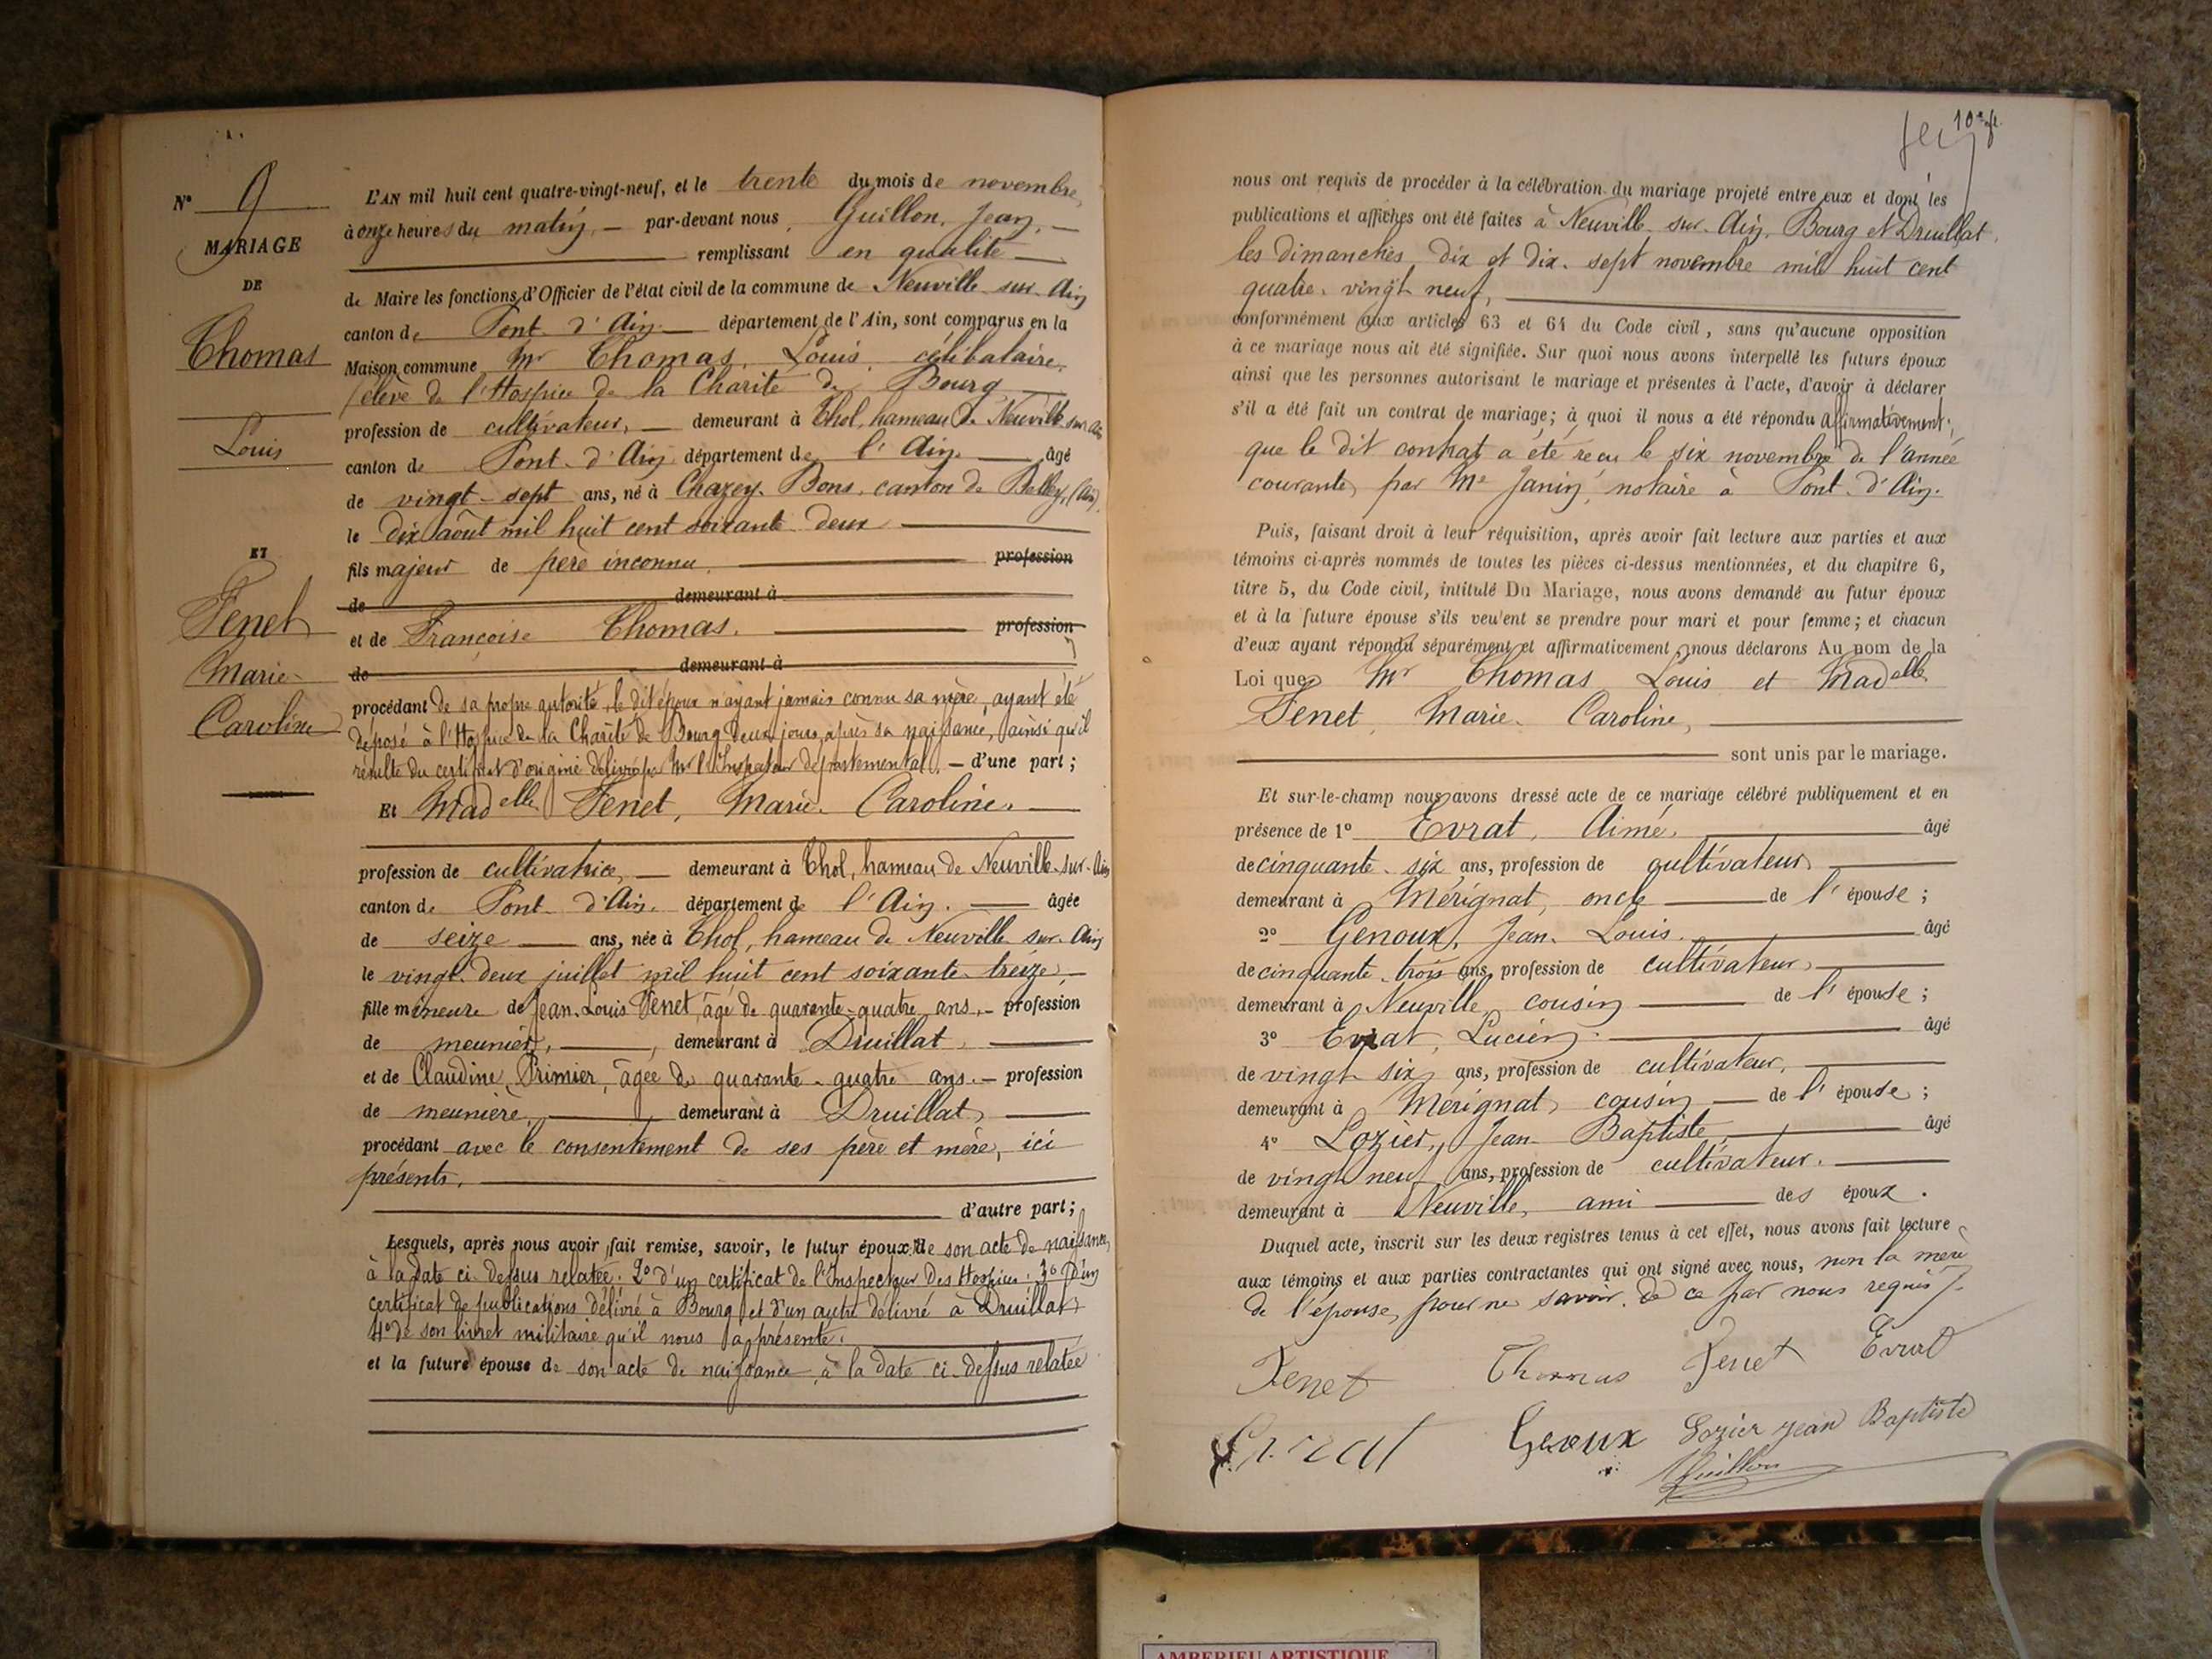 N° 9
MARIAGE
DE
Thomas
Louis
ET
Tenet
Marie-
Caroline
L'AN mil huit cent quatre-vingt-neuf, et le trente du mois de novembre,
à onze heures du matin, — par-devant nous, Guillon, Jean, —
remplissant en qualité
de Maire les fonctions d'Officier de l'état civil de la commune de Neuville-sur-Ain
canton de Pont-d'Ain département de l'Ain, sont comparus en la
Maison commune Mr Thomas, Louis, célibataire,
élève de l'Hospice de la Charité de Bourg
profession de cultivateur, — demeurant à Thol, hameau de Neuville sur Ain
canton de Pont-d'Ain département de l'Ain. — âgé
de vingt-sept ans, né à Chazey-Bons, canton de Belley, (Ain),
le dix août mil huit cent soixante deux
fils majeur de père inconnu. profession
de demeurant à
et de Françoise Thomas. profession
de demeurant à
procédant de sa propre autorité, le dit époux n'ayant jamais connu sa mère, ayant été
déposé à l'Hospice de la Charité de Bourg deux jours après sa naissance, ainsi qu'il
résulte du certificat d'origine délivré par Mr l'Inspecteur départemental, — d'une part;
Et Madelle Tenet, Marie-Caroline,
profession de cultivatrice, — demeurant à Thol, hameau de Neuville-sur-Ain
canton de Pont-d'Ain, département de l'Ain. — âgée
de seize — ans, née à Thol, hameau de Neuville-sur-Ain
le vingt-deux juillet mil huit cent soixante-treize,
fille mineure de Jean-Louis Tenet, âgé de quarante-quatre ans, — profession
de meunier, —, demeurant à Druillat,
et de Claudine Primier, âgée de quarante-quatre ans. — profession
de meunière, — demeurant à Druillat,
procédant avec le consentement de ses père et mère, ici
présents,
d'autre part;
Lesquels, après nous avoir fait remise, savoir, le futur époux: 1° de son acte de naissance,
à la date ci-dessus relatée. 2° d'un certificat de l'Inspecteur des Hospices; 3° d'un
certificat de publications délivré à Bourg et d'un autre délivré à Druillat;
4° de son livret militaire qu'il nous a présenté.
et la future épouse de son acte de naissance, à la date ci-dessus relatée
10e
nous ont requis de procéder à la célébration du mariage projeté entre eux et dont les
publications et affiches ont été faites à Neuville-sur-Ain, Bourg et Druillat,
les dimanches dix et dix-sept novembre mil huit cent
quatre-vingt neuf,
conformément aux articles 63 et 64 du Code civil, sans qu'aucune opposition
à ce mariage nous ait été signifiée. Sur quoi nous avons interpellé les futurs époux
ainsi que les personnes autorisant le mariage et présentes à l'acte, d'avoir à déclarer
s'il a été fait un contrat de mariage; à quoi il nous a été répondu affirmativement;
que le dit contrat a été reçu le six novembre de l'année
courante, par Me Janin, notaire à Pont-d'Ain.
Puis, faisant droit à leur réquisition, après avoir fait lecture aux parties et aux
témoins ci-après nommés de toutes les pièces ci-dessus mentionnées, et du chapitre 6,
titre 5, du Code civil, intitulé Du Mariage, nous avons demandé au futur époux
et à la future épouse s'ils veulent se prendre pour mari et pour femme; et chacun
d'eux ayant répondu séparément et affirmativement, nous déclarons Au nom de la
Loi que Mr Thomas Louis et Madelle
Tenet, Marie-Caroline,
sont unis par le mariage.
Et sur-le-champ nous avons dressé acte de ce mariage célébré publiquement et en
présence de 1° Evrat, Aimé, âgé
de cinquante-six ans, profession de cultivateur
demeurant à Mérignat, oncle de l'épouse;
2° Genoux, Jean-Louis. âgé
de cinquante-trois ans, profession de cultivateur,
demeurant à Neuville, cousin de l'épouse;
3° Evrat, Lucien. âgé
de vingt-six ans, profession de cultivateur,
demeurant à Mérignat, cousin de l'épouse;
4° Lozier, Jean-Baptiste, âgé
de vingt neuf ans, profession de cultivateur.
demeurant à Neuville, ami des époux.
Duquel acte, inscrit sur les deux registres tenus à cet effet, nous avons fait lecture
aux témoins et aux parties contractantes qui ont signé avec nous, non la mère
de l'épouse, pour ne savoir, de ce par nous requis.
Tenet Thomas Tenet Evrat
Evrat Genoux Lozier Jean Baptiste
Guillon
AMBERIEU ARTISTIQUE